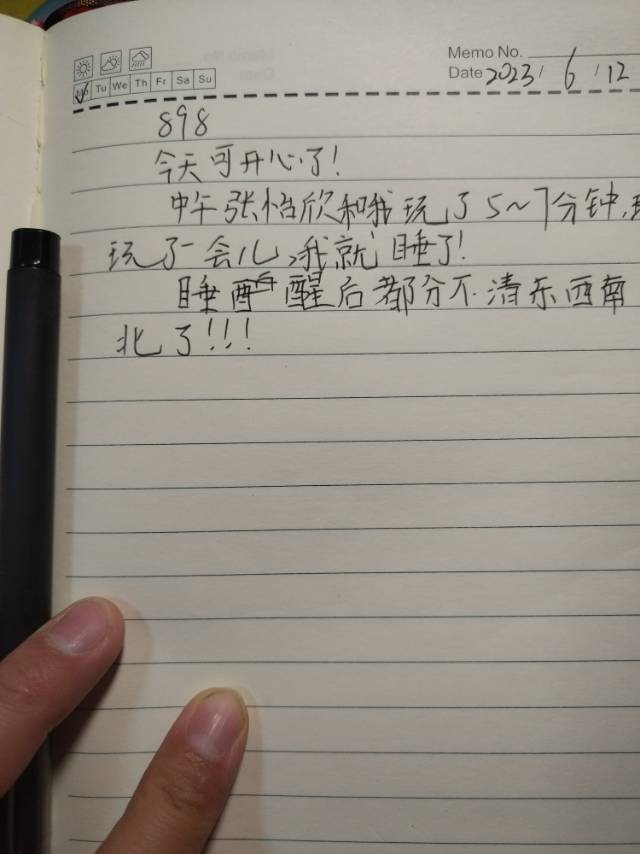 Memo No.
Mo Tu We Th Fr Sa Su
Date 2023 / 6 / 12
898
今天可开心了!
中午张怡欣和我玩了5~7分钟,
玩了一会儿,我就睡了!
睡醒后都分不清东西南
北了!!!